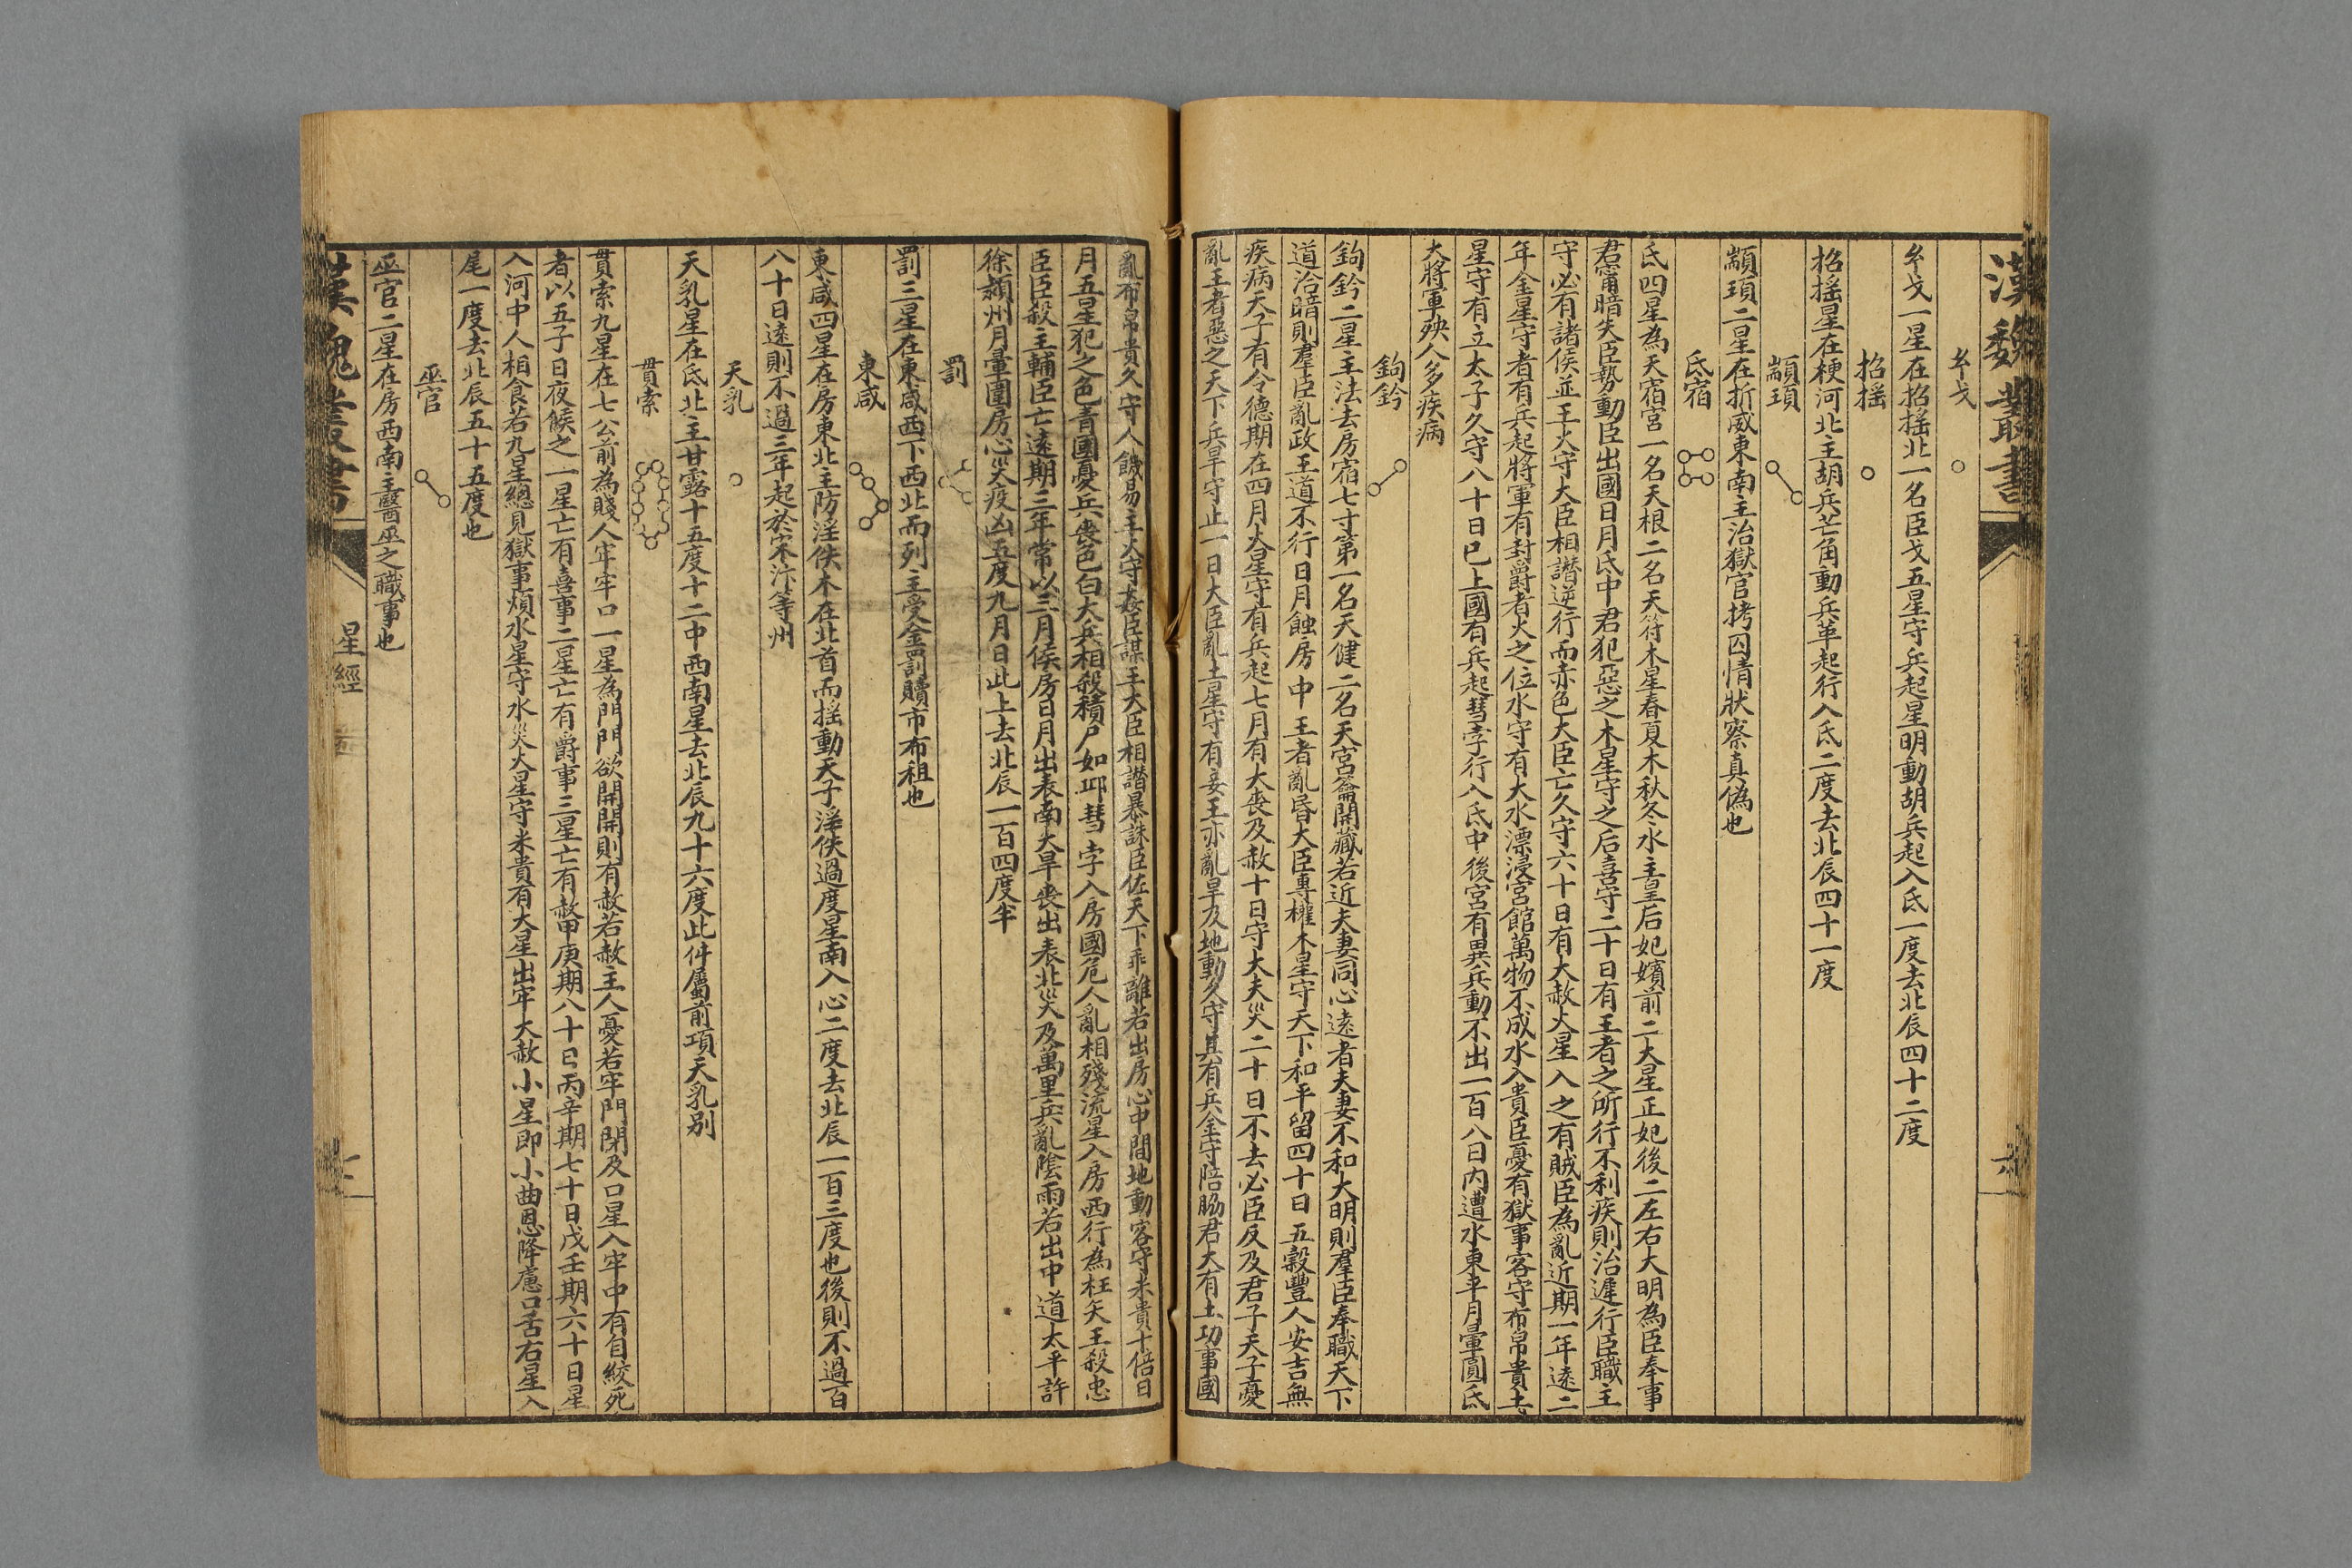 漢魏叢書
六
𢆯戈
𢆯戈一星在招摇北一名臣戈五星守兵起星明動胡兵起入氐一度去北辰四十二度
招摇
招摇星在梗河北主胡兵芒角動兵革起行入氐二度去北辰四十一度
顓頊
顓頊二星在折威東南主治獄官拷囚情狀察真偽也
氐宿
氐四星為天宿宮一名天根二名天符木星春夏木秋冬水主皇后妃嬪前二大星正妃後二左右大明為臣奉事
君寗暗失臣勢動臣出國日月氐中君犯惡之木星守之后喜守二十日有王者之所行不利疾則治遲行臣職主
守必有諸侯並王火守大臣相譖逆行而赤色大臣亡久守六十日有大赦火星入之有賊臣為亂近期一年遠二
年金星守者有兵起將軍有封爵者火之位水守有大水漂浸宮館萬物不成水入貴臣憂有獄事客守布帛貴土
星守有立太子久守八十日已上國有兵起彗孛行入氐中後宮有異兵動不出一百八日內遭水東平月暈圓氐
大將軍殃人多疾病
鉤鈐
鉤鈐二星主法去房宿七寸第一名天健二名天宮籥開藏若近夫妻同心遠者夫妻不和大明則羣臣奉職天下
道洽暗則羣臣亂政王道不行日月蝕房中王者亂昏大臣專權木星守天下和平留四十日五穀豐人安吉無
疾病天子有令德期在四月火星守有兵起七月有大喪及赦十日守大夫災二十日不去必臣反及君子天子憂
亂王者惡之天下兵旱守止一日大臣亂土星守有妾王亦亂旱及地動久守其有兵金守陪脇君大有土功事國
亂布帛貴久守人饑易主火守姦臣謀王大臣相譖暴誅臣佐天下乖離若出房心中間地動客守米貴十倍日
月五星犯之色青國憂兵喪色白大兵相殺積尸如邱彗孛入房國危人亂相殘流星入房西行為枉矢王殺忠
臣臣殺主輔臣亡遠期三年常以三月候房日月出表南大旱喪出表北災及萬里兵亂陰雨若出中道太平許
徐潁州月暈圍房心災疫凶五度九月日此上去北辰一百四度半
罰
罰三星在東咸西下西北而列主受金罰贖市布租也
東咸
東咸四星在房東北主防淫佚木在北首而揺動天子淫佚過度星南入心二度去北辰一百三度也後則不過百
八十日遠則不過三年起於宋汴等州
天乳
天乳星在氐北主甘露十五度十二中西南星去北辰九十六度此件屬前項天乳别
貫索
貫索九星在七公前為賤人牢牢口一星為門門欲開開則有赦若赦主人憂若牢門閉及口星入牢中有自絞死
者以五子日夜候之一星亡有喜事二星亡有爵事三星亡有赦甲庚期八十日丙辛期七十日戊壬期六十日星
入河中人相食若九星總見獄事煩水星守水災火星守米貴有大星出牢大赦小星即小曲恩降慮口舌右星入
尾一度去北辰五十五度也
巫官
巫官二星在房西南主醫巫之職事也
漢魏叢書
星經
七